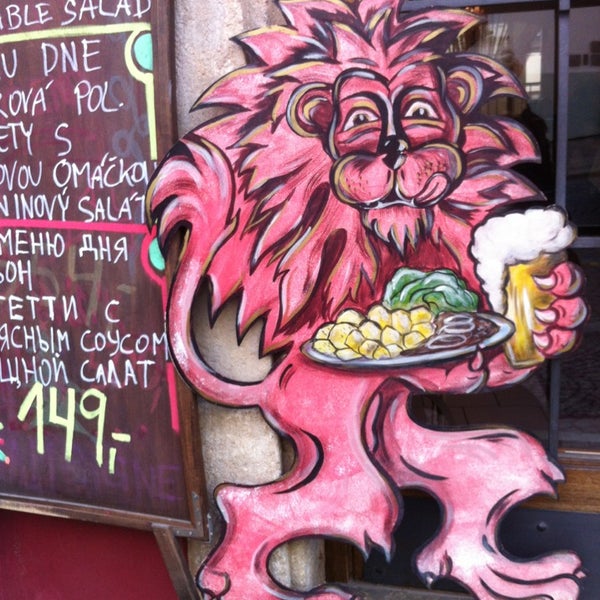 IBLE SALAD
U DNE
ROVÁ POL.
ETY S
OVOU OMÁČKOU
NINOVÝ SALÁT
МЕНЮ ДНЯ
ЬОН
ГЕТТИ С
ЯСНЫМ СОУСОМ
ЩНОЙ САЛАТ
149,-